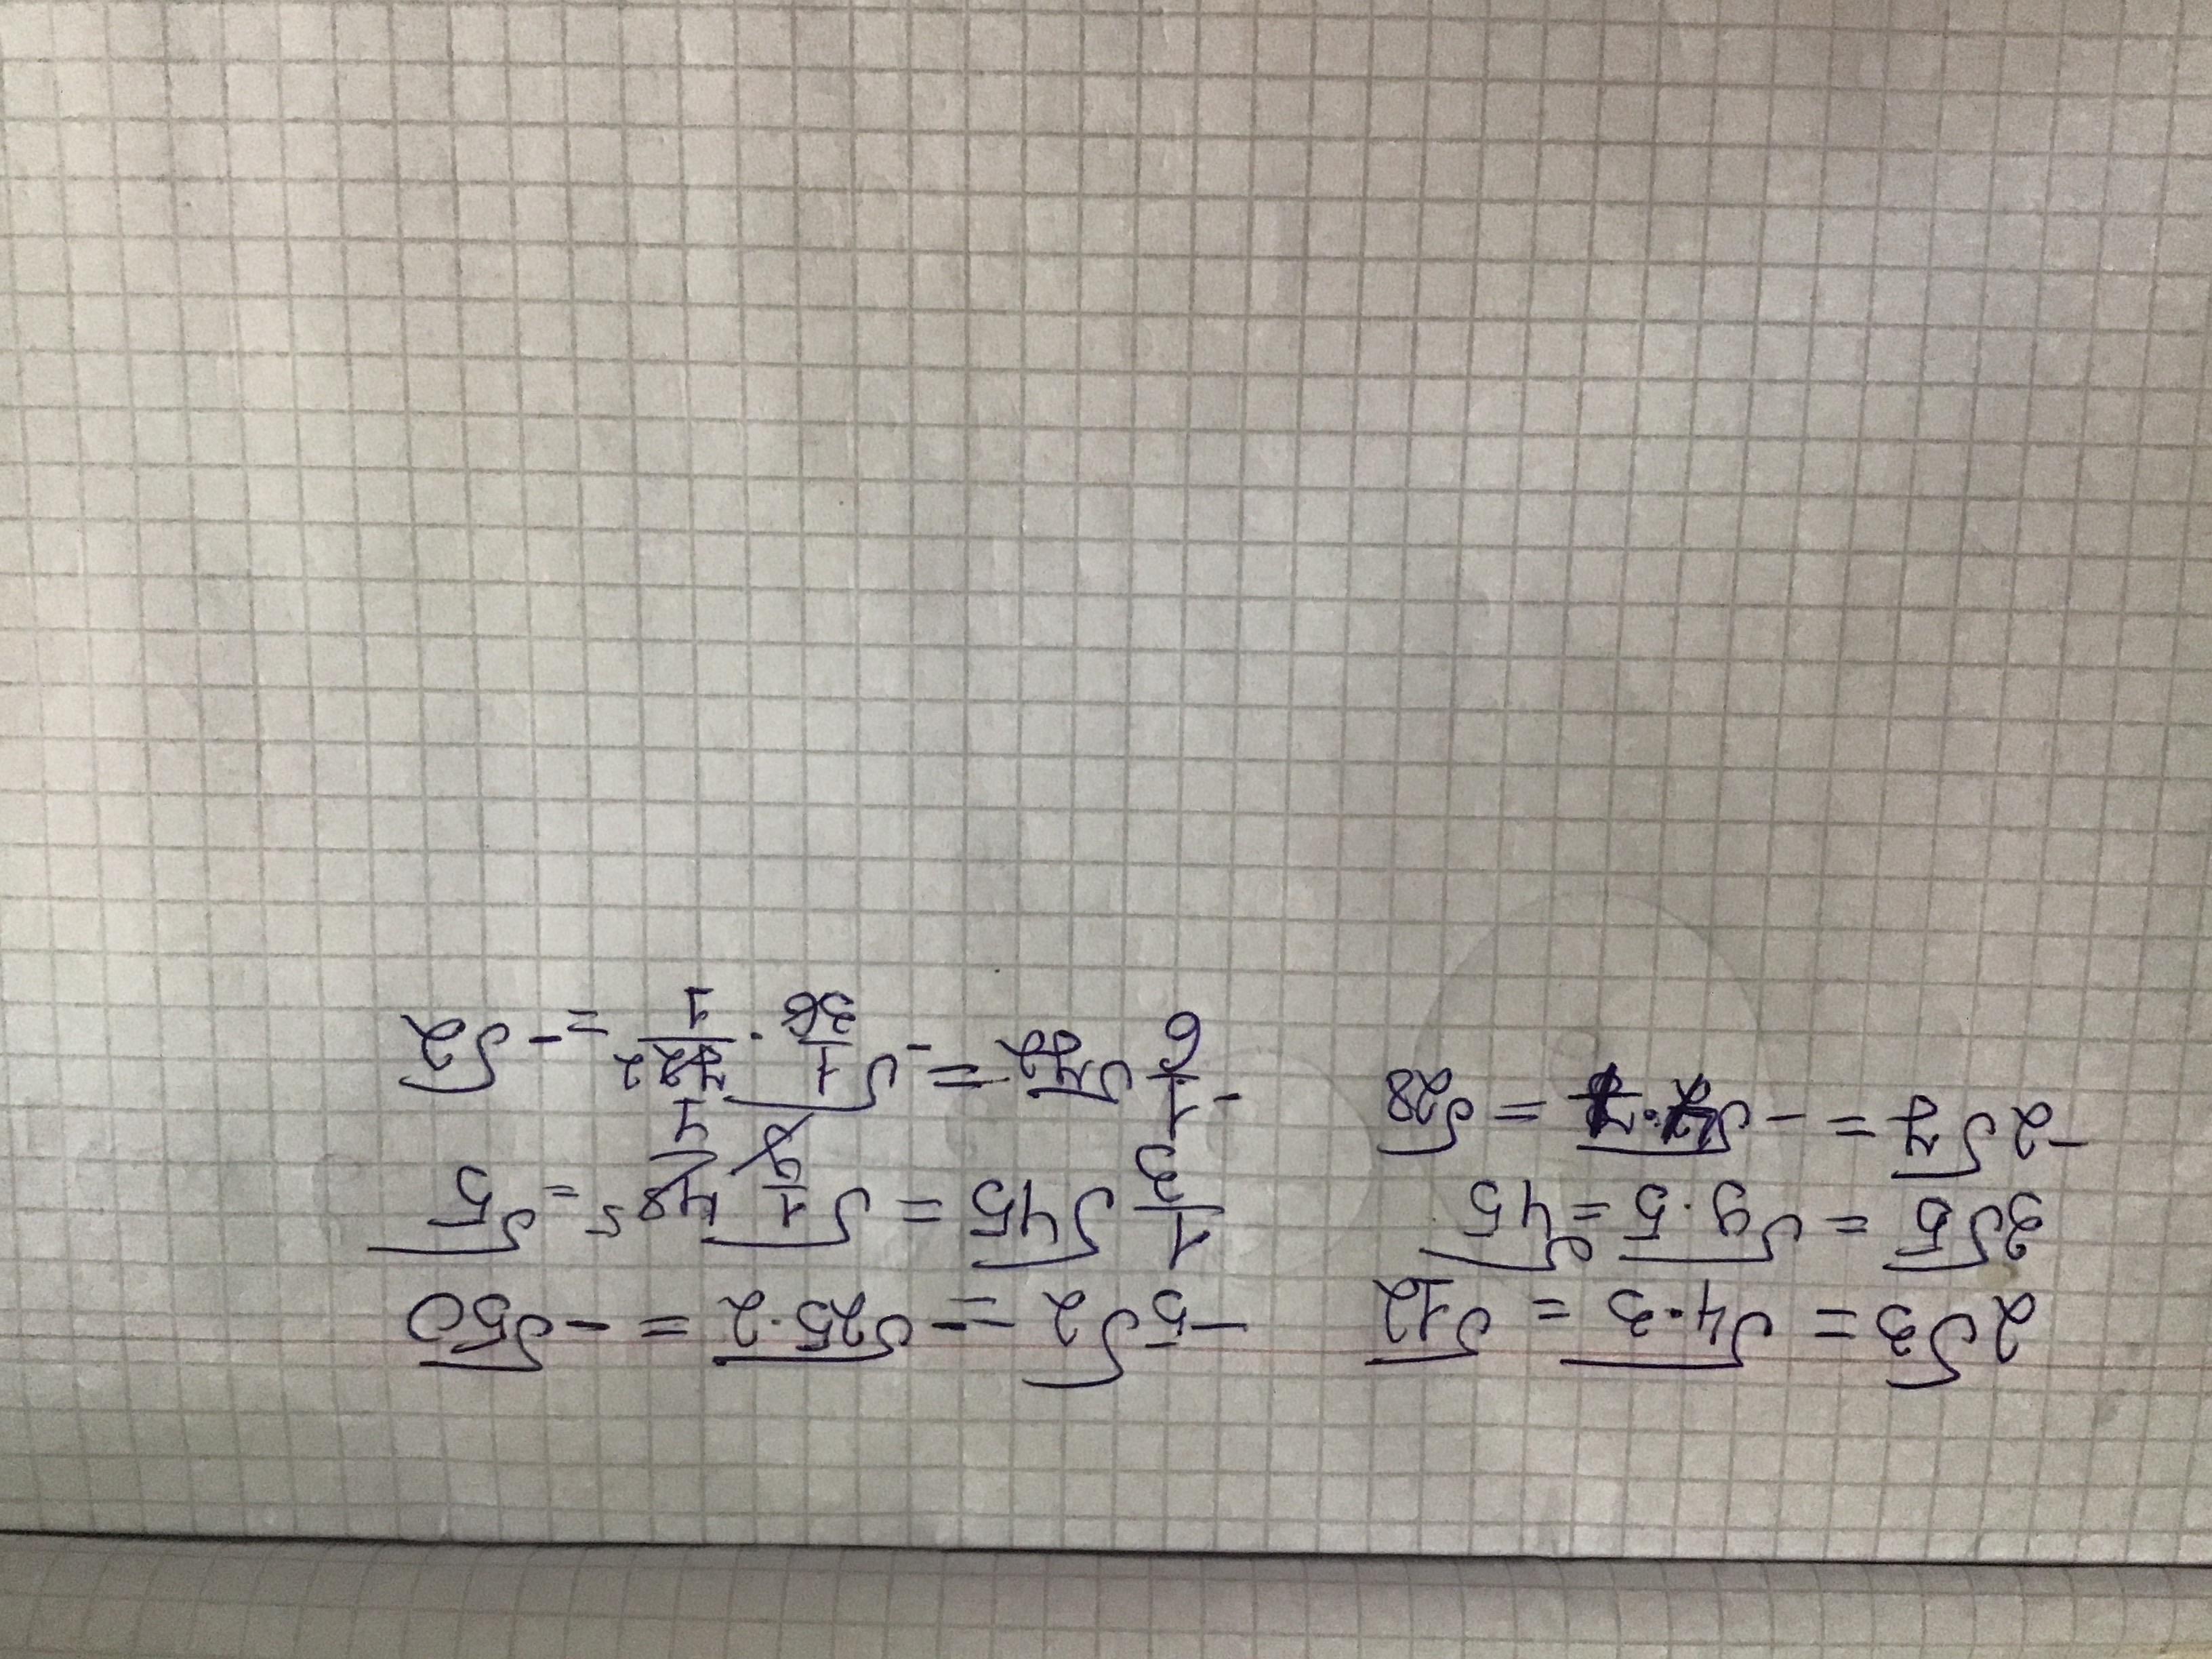 2√3 = √4·3 = √12
3√5 = √9·5 = √45
-2√7 = -√4·7 = √28
-5√2 = -√25·2 = -√50
1/3 √45 = √1/9 45 5/1 = √5
-1/6 √72 = -√1/36 · 72 2/1 = -√2